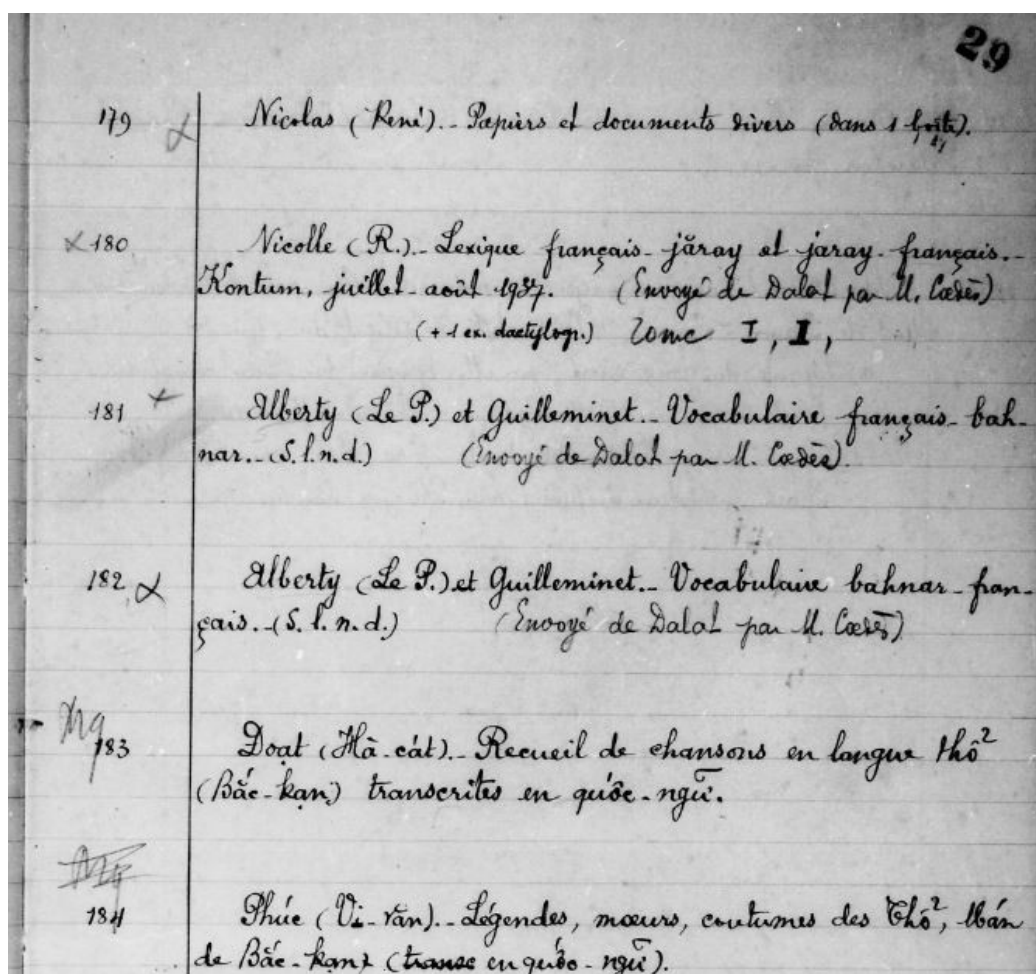 29
179 Nicolas (René).- Papiers et documents divers (dans 1 boîte).
180 Nicolle (R.).- Lexique français-jăray et jaray-français.-
Kontum, juillet-août 1937. (Envoyé de Dalat par M. Cœdès)
(+ 1 ex. dactylogr.) Tome I, II,
181 Alberty (Le P.) et Guilleminet.- Vocabulaire français-bah-
nar.- (S.l.n.d.) (Envoyé de Dalat par M. Cœdès).
182 Alberty (Le P.) et Guilleminet.- Vocabulaire bahnar-fran-
çais.- (S.l.n.d.) (Envoyé de Dalat par M. Cœdès)
183 Doạt (Hà-cát).- Recueil de chansons en langue thô²
(Bắc-kạn) transcrites en quốc-ngữ.
184 Phúc (Vi-văn).- Légendes, mœurs, coutumes des Thô², Mán
de Bắc-kạn (transc en quốc-ngữ).